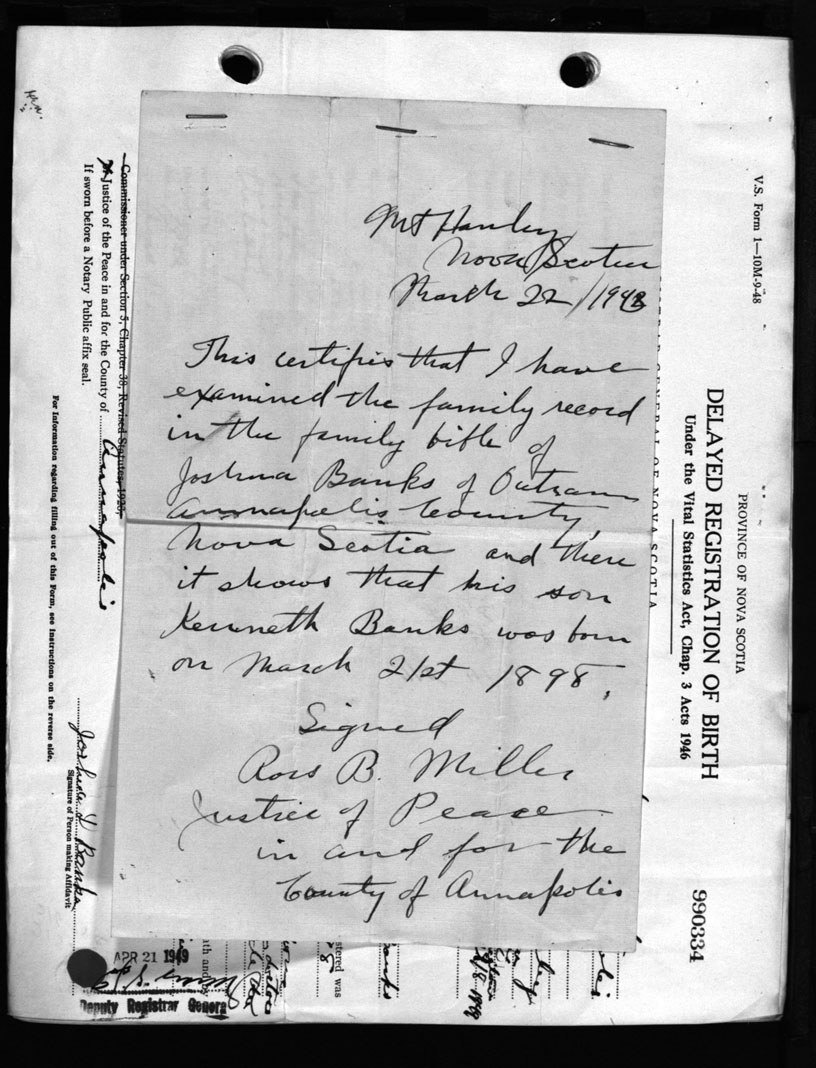 Mt Hanley
Nova Scotia
March 22/1943
This certifies that I have
examined the family record
in the family bible of
Joshua Banks of Outram
Annapolis County,
Nova Scotia and there
it shows that his son
Kenneth Banks was born
on March 21st 1898,
Signed
Ross B. Miller
Justice of Peace
in and for the
County of Annapolis
V.S. Form 1—10M-9-48
PROVINCE OF NOVA SCOTIA
DELAYED REGISTRATION OF BIRTH
Under the Vital Statistics Act, Chap. 3 Acts 1946
990334
GENERAL OF NOVA SCOTIA
Commissioner under Section 5, Chapter 38, Revised Statutes, 1920,
Justice of the Peace in and for the County of Annapolis
If sworn before a Notary Public affix seal.
For Information regarding filling out of this Form, see Instructions on the reverse side.
Signature of Person making Affidavit
stered was
APR 21 1949
Deputy Registrar General